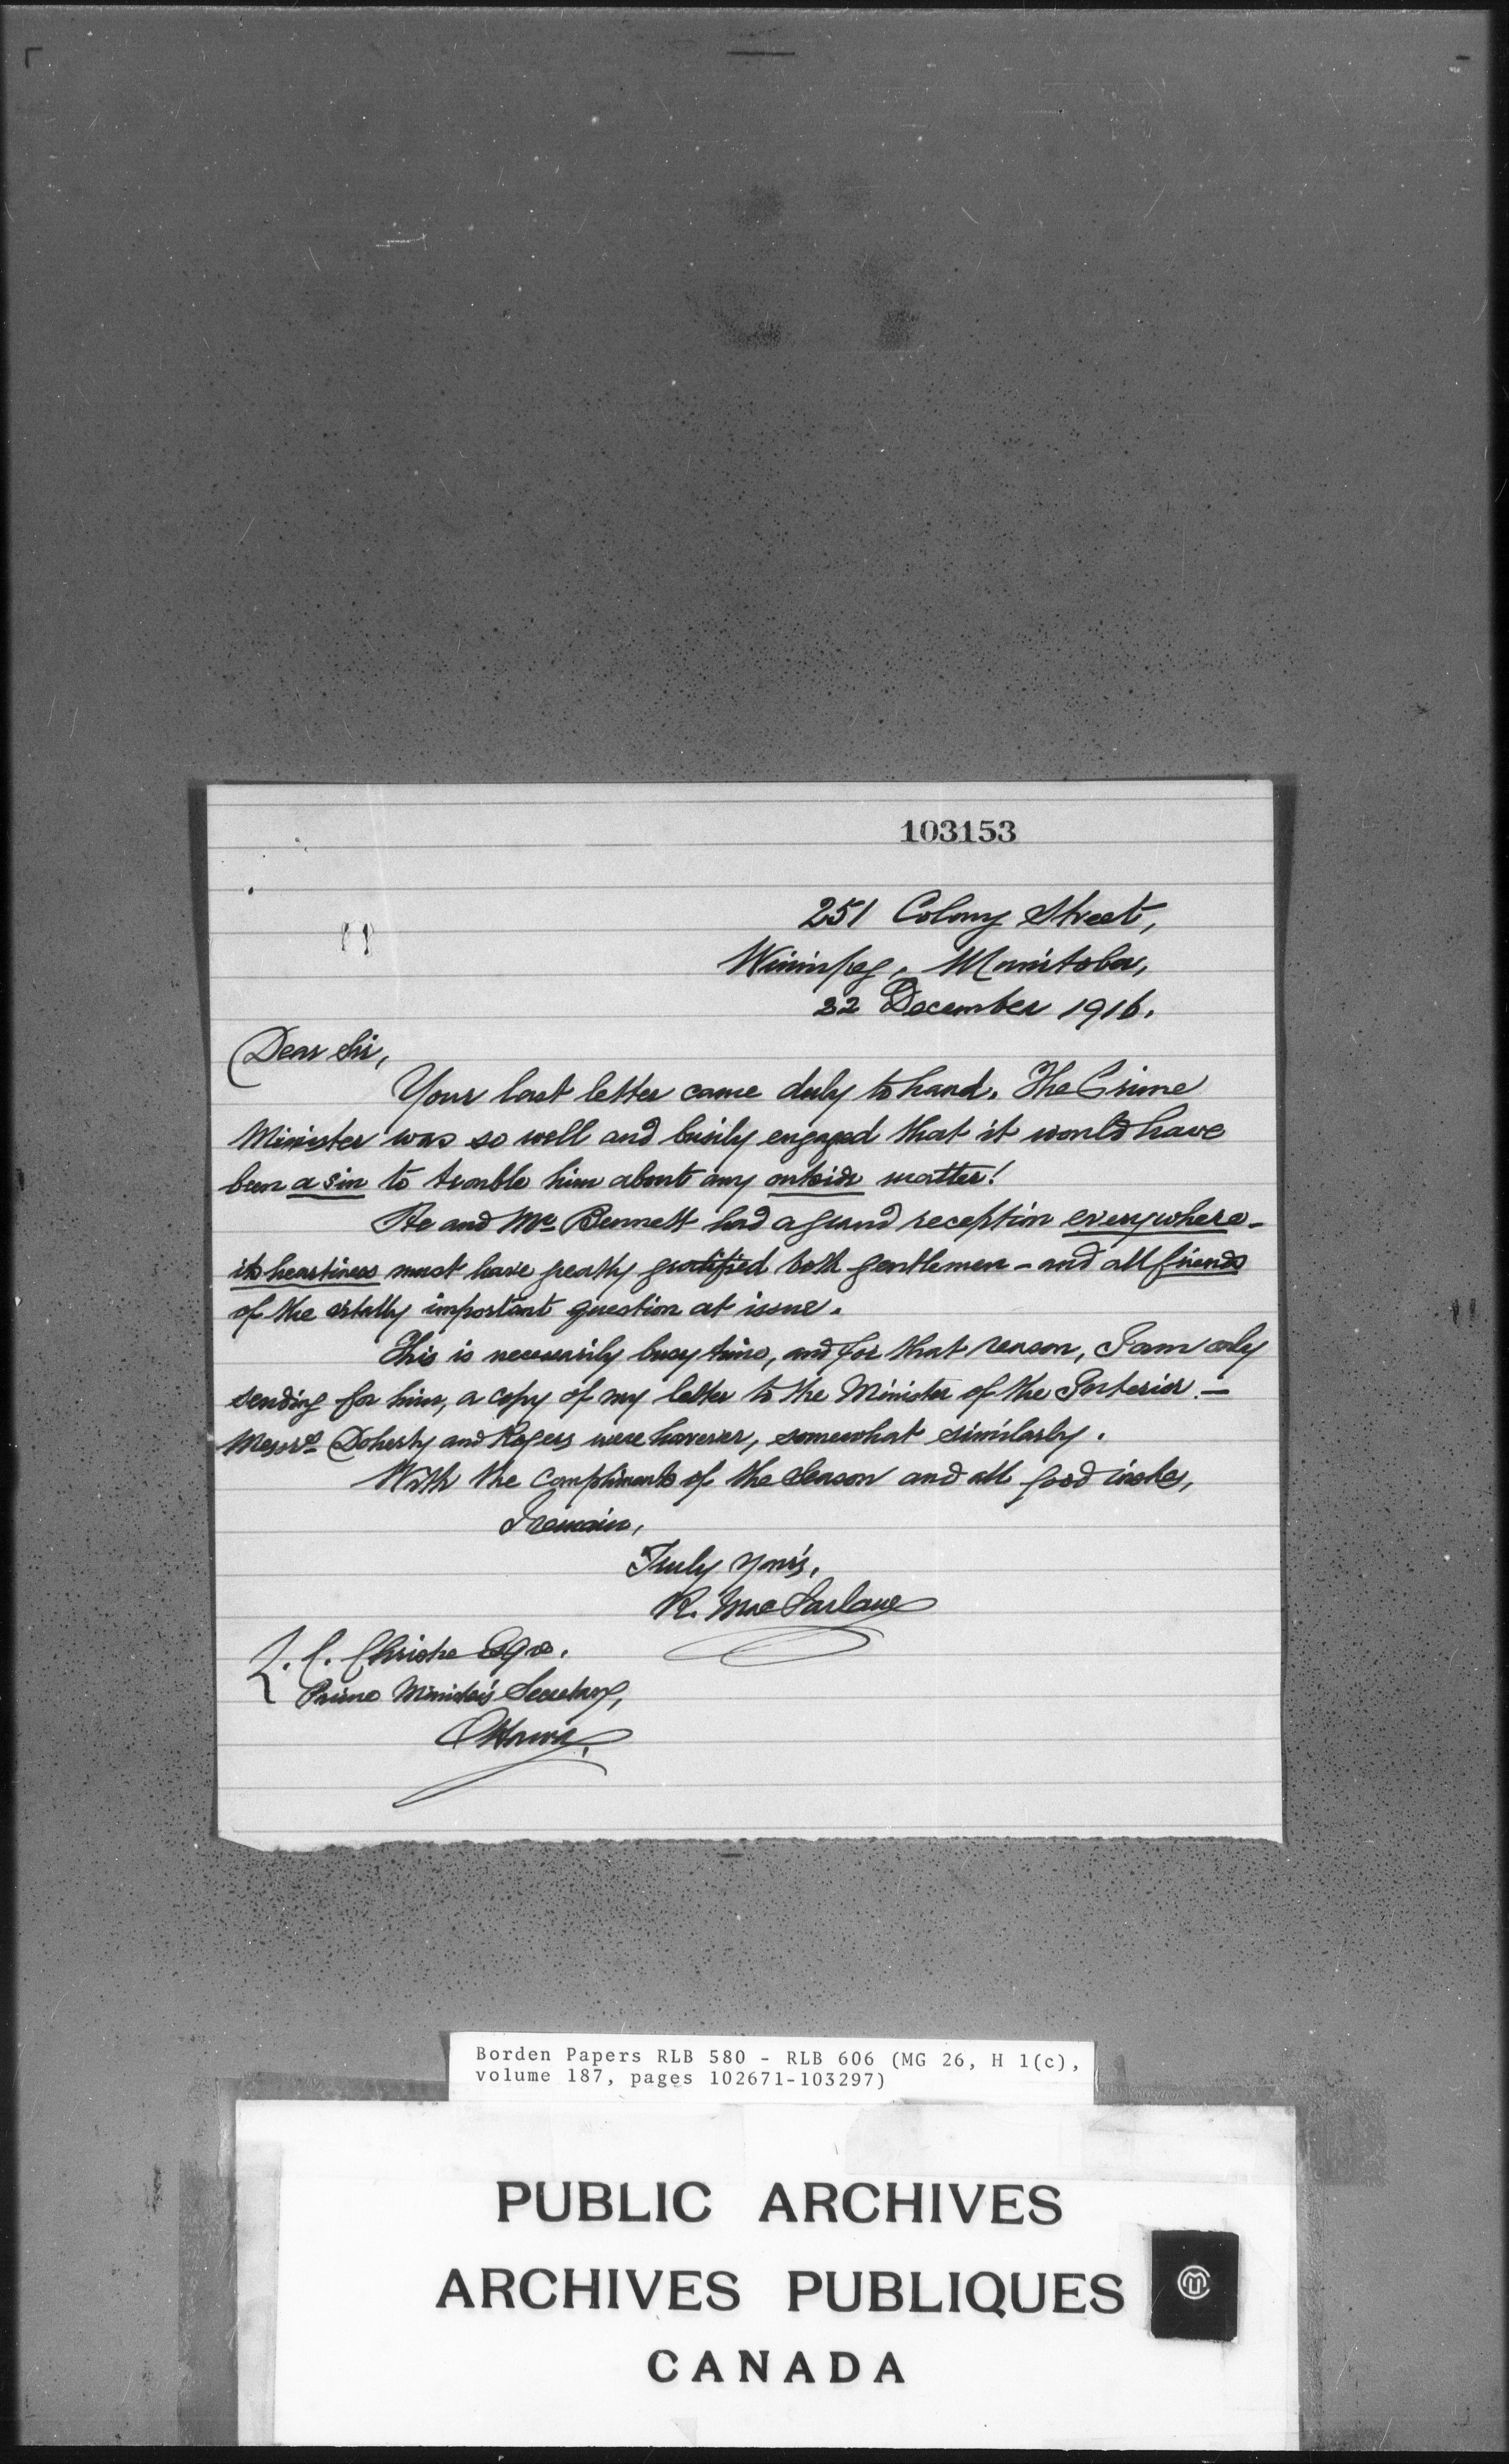 103153
251 Colony Street,
Winnipeg, Manitoba,
22 December 1916.
Dear Sir,
Your last letter came duly to hand. The Prime
Minister was so well and busily engaged that it would have
been a sin to trouble him about any outside matter!
He and Mr Bennett had a grand reception everywhere -
its heartiness must have greatly gratified both gentlemen - and all friends
of the vitally important question at issue.
This is necessarily busy time, and for that reason, I am only
sending for him, a copy of my letter to the Minister of the Interior -
Messrs Doherty and Rogers were however, somewhat similarly.
With the compliments of the Season and all good wishes,
I remain,
Truly yours,
R. MacFarlane
L. C. Christie Esqre.
Prime Minister's Secretary,
Ottawa.
Borden Papers RLB 580 - RLB 606 (MG 26, H 1(c),
volume 187, pages 102671-103297)
PUBLIC ARCHIVES
ARCHIVES PUBLIQUES
CANADA